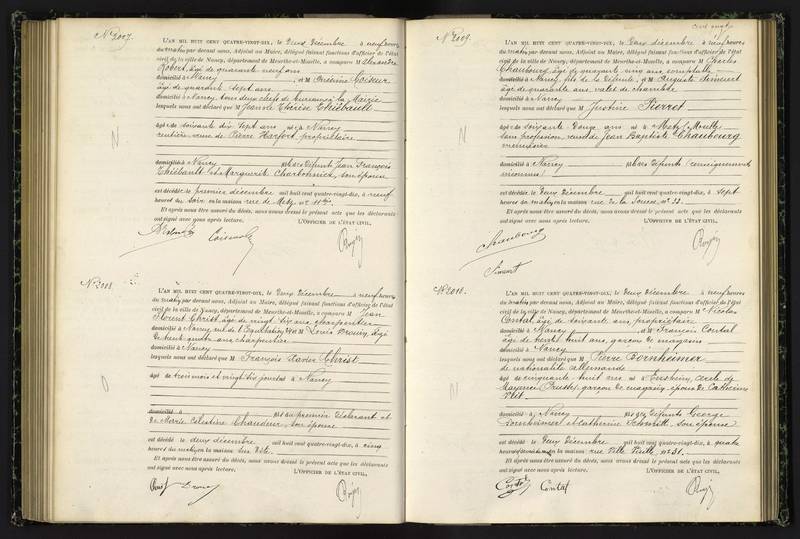 N° 2007.
L'AN MIL HUIT CENT QUATRE-VINGT-DIX, le Deux Décembre à neuf heures
du matin par devant nous, Adjoint au Maire, délégué faisant fonctions d'officier de l'état
civil de la ville de Nancy, département de Meurthe-et-Moselle, a comparu M Alexandre
Robert, âgé de quarante neuf ans
domicilié à Nancy, et M
âgé de quarante sept ans
domicilié à Nancy, tous deux chefs de bureau à la Mairie
lesquels nous ont déclaré que M Jeanne Thérèse Thiébault
âgé de soixante dix sept ans né à Nancy
rentière, veuve de Pierre Harfort, propriétaire
domicilié à Nancy fils des défunts Jean François
Thiébault et Marguerite Charbonnier, son épouse
est décédé le premier décembre mil huit cent quatre-vingt-dix, à neuf
heures du soir en la maison rue de Metz n° 11 bis.
Et après nous être assuré du décès, nous avons dressé le présent acte que les déclarants
ont signé avec nous après lecture. L'OFFICIER DE L'ÉTAT CIVIL,
N
N° 2008.
L'AN MIL HUIT CENT QUATRE-VINGT-DIX, le Deux Décembre à neuf heures
du matin par devant nous, Adjoint au Maire, délégué faisant fonctions d'officier de l'état
civil de la ville de Nancy, département de Meurthe-et-Moselle, a comparu M Jean
Christ, âgé de vingt six ans, charpentier
domicilié à Nancy rue de l'Equitation et M Louis Drouin, âgé
de trente quatre ans charpentier
domicilié à Nancy
lesquels nous ont déclaré que M François Xavier Christ
âgé de trois mois et vingt six jours né à Nancy
domicilié à fils du premier déclarant et
de Marie Célestine Chaudeur, son épouse
est décédé le deux décembre mil huit cent quatre-vingt-dix, à cinq
heures du matin en la maison
Et après nous être assuré du décès, nous avons dressé le présent acte que les déclarants
ont signé avec nous après lecture. L'OFFICIER DE L'ÉTAT CIVIL,
O
Christ Drouin
N° 2009.
L'AN MIL HUIT CENT QUATRE-VINGT-DIX, le Deux décembre à neuf heures
du matin par devant nous, Adjoint au Maire, délégué faisant fonctions d'officier de l'état
civil de la ville de Nancy, département de Meurthe-et-Moselle, a comparu M Charles
Chaubourg, âgé de quarante cinq ans, comptable
domicilié à Nancy, fils de la défunte, et M Auguste Simonet
âgé de quarante ans, valet de chambre
domicilié à Nancy
lesquels nous ont déclaré que M Justine Pierret
âgé de soixante douze ans né à Metz, Moselle
sans profession, veuve de Jean Baptiste Chaubourg
menuisier
domicilié à Nancy fils des défunts (renseignements
inconnus)
est décédé le Deux Décembre mil huit cent quatre-vingt-dix, à sept
heures du matin en la maison rue de la Source, n° 33.
Et après nous être assuré du décès, nous avons dressé le présent acte que les déclarants
ont signé avec nous après lecture. L'OFFICIER DE L'ÉTAT CIVIL,
Chaubourg
Simonet
N° 2010.
L'AN MIL HUIT CENT QUATRE-VINGT-DIX, le Deux Décembre à neuf heures
du matin par devant nous, Adjoint au Maire, délégué faisant fonctions d'officier de l'état
civil de la ville de Nancy, département de Meurthe-et-Moselle, a comparu M Nicolas
Contal, âgé de soixante ans, propriétaire
domicilié à Nancy, et M François Contal
âgé de trente huit ans, garçon de magasin
domicilié à Nancy
lesquels nous ont déclaré que M Pierre Dornheimer
de nationalité allemande
âgé de cinquante huit ans né à cercle de
Mayence (Prusse), garçon de magasin, époux de Catherine
domicilié à Nancy fils des défunts George
Dornheimer et Catherine Schmitt, son épouse
est décédé le Deux Décembre mil huit cent quatre-vingt-dix, à quatre
heures du matin en la maison rue Ville Vieille, n° 31.
Et après nous être assuré du décès, nous avons dressé le présent acte que les déclarants
ont signé avec nous après lecture. L'OFFICIER DE L'ÉTAT CIVIL,
N
Contal Contal